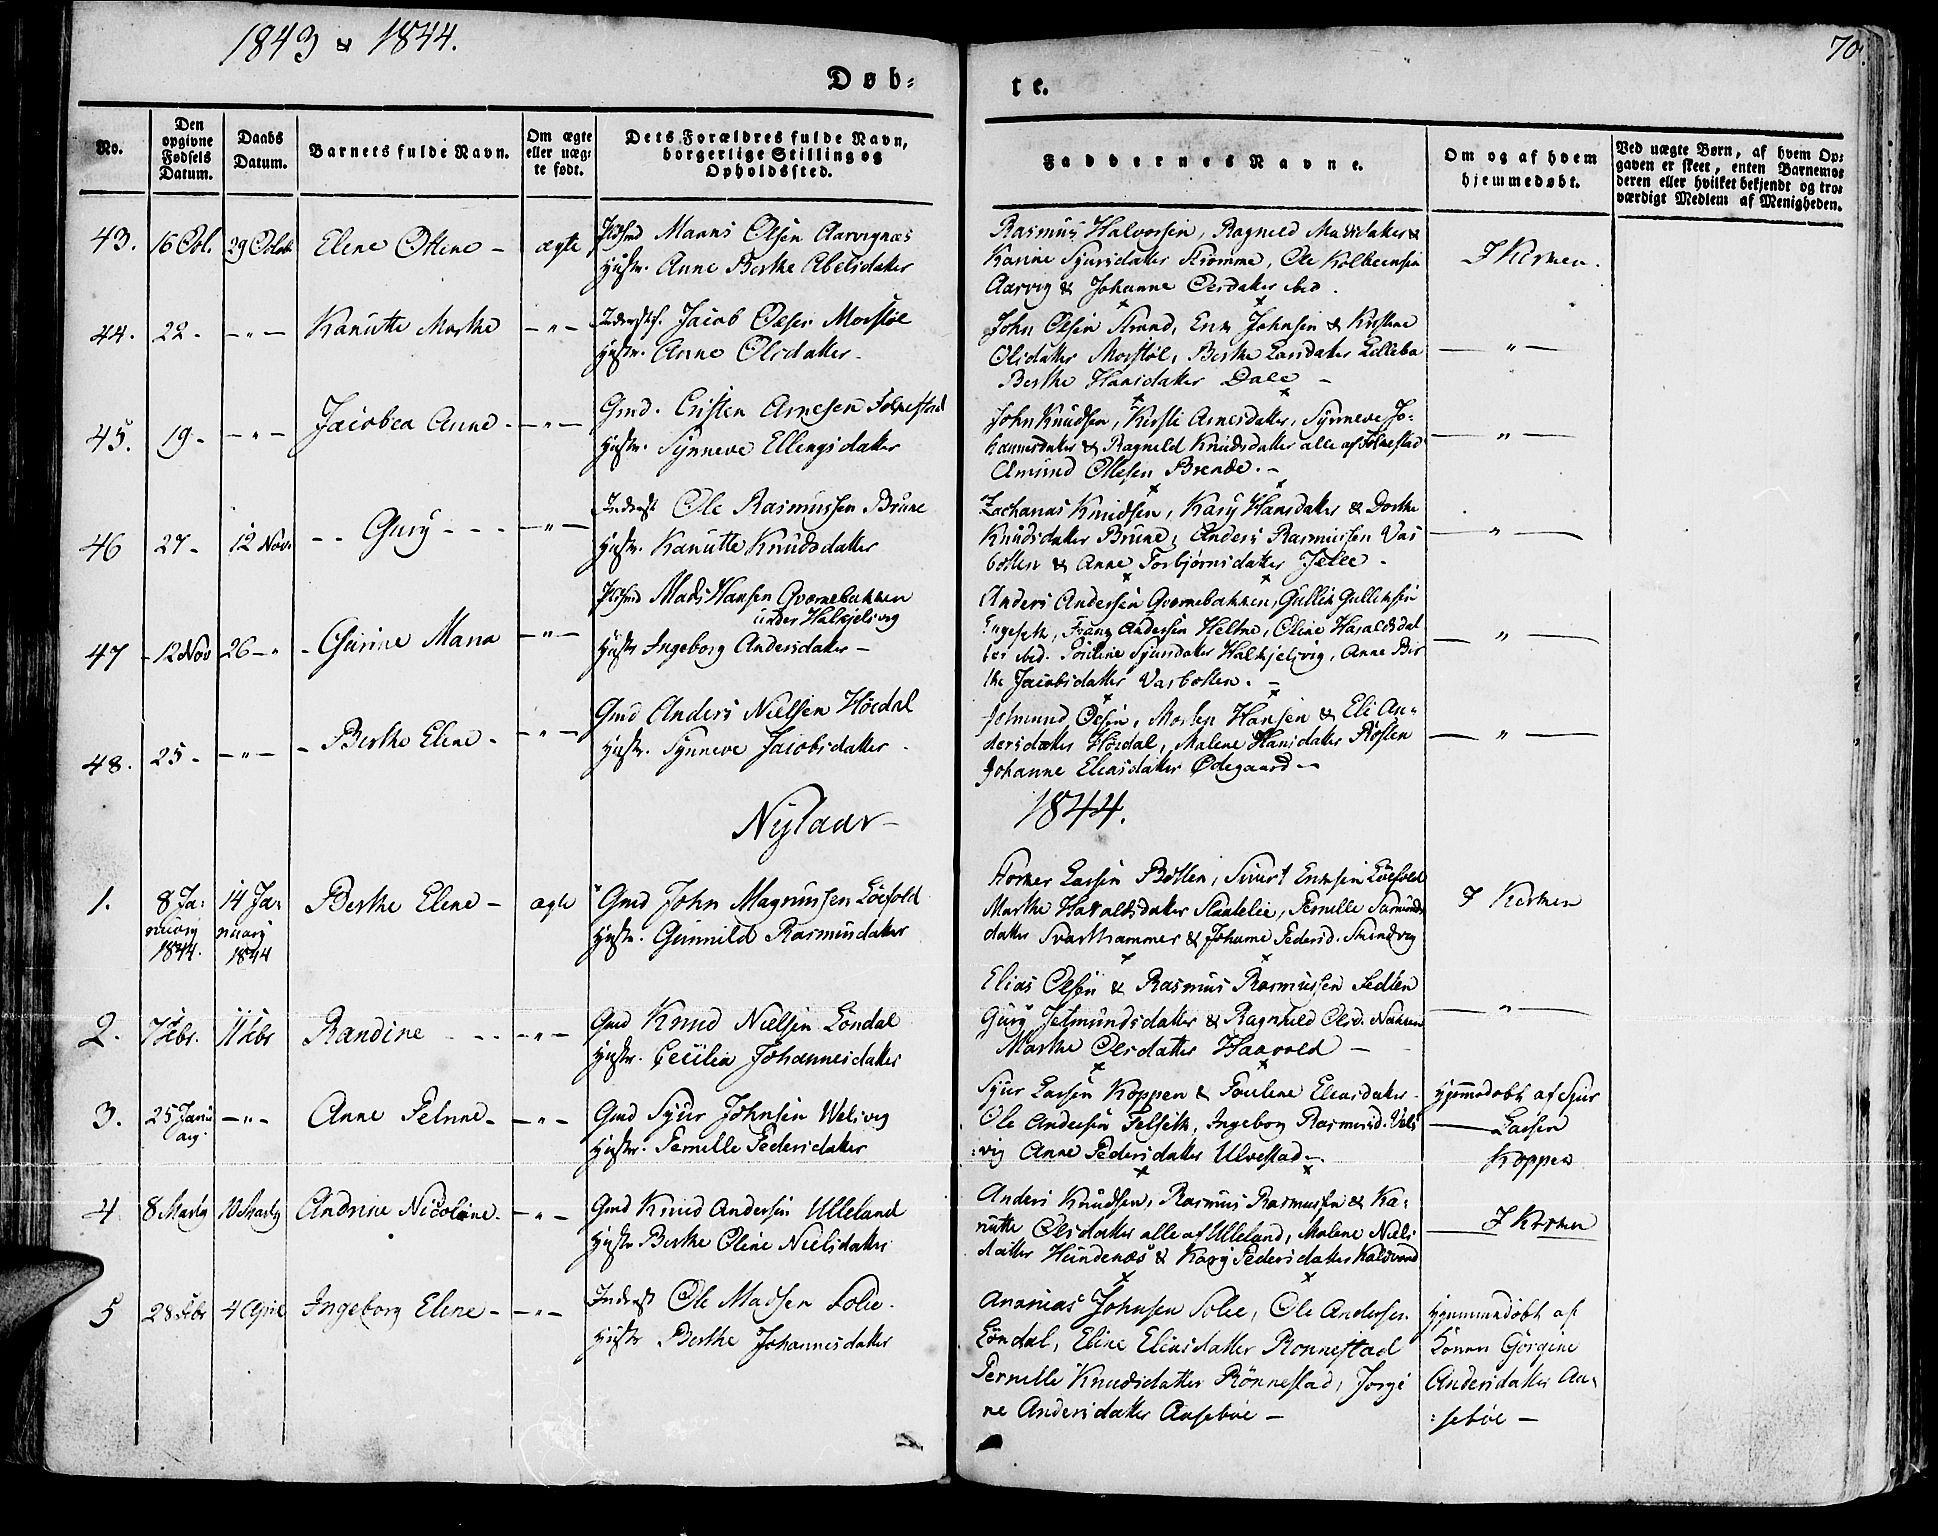 1843 & 1844.
70.
Døb-
te.
No.
Den opgivne Fødsels Datum.
Daabs Datum.
Barnets fulde Navn.
Om ægte eller uæg-te født.
Dets Forældres fulde Navn, borgerlige Stilling og Opholdssted.
Faddernes Navne.
Om og af hvem hjemmedøbt.
Ved uægte Børn, af hvem Op-
gaven er skeet, enten Barnemo-
deren eller hvilket bekjendt og tro-
værdigt Medlem af Menigheden.
43. 16 Oct. 29 Octob Elene Oline - ægte
Maans Olsen Aarvignæs
Hustr. Anne Berthe Abelsdatter
Rasmus Halvorsen, Ragnild
Karine Sjursdatter Strømme, Ole Kolbeensen
Aarvig & Johanne Olsdatter ibid.
I Kirken.
44. 22 - -"- Kanutte Marthe -"-
Jacob Olsen Morstøl
Hustr. Anne Olsdatter -
John Olsen Strand, Johnsen & Kristene
Olsdatter Morstøl, Berthe Larsdatter Lillebø
Berthe Hansdatter Dale -
- " -
45. 19 - -"- Jacobea Anne - -"-
Gmd. Cristen Arnesen Folkestad
Hustr. Synneve Ellingsdatter
John Knudsen, Kirsti Arnesdatter, Synneve Jo-
hannsdatter & Ragnild Knudsdatter alle af Folkestad
Amund Olsen Brende. -
- " -
46 27 - 12 Nov. - - Gury - - - -"-
Inderst Ole Rasmussen Brune
Hustr. Kanutte Knudsdatter
Zacharias Knudsen, Kary Hansdatter & Dorthe
Knudsdatter Brune, Anders Rasmussen Vas
botten & Anne Torbjørnsdatter
- " -
47 - 12 Nov 26 - " - Maria -"-
Mads Hansen Qvernebakken
under Halkjelsvig
Hustr Ingeborg Andersdatter -
Anders Andersen Qvernebakken, Gullik Gulliksen
Andersen Heltne, Oline Haraldsdat
ter ibd. Sjursdatter Halkjelsvig, Anne Ber
the Jacobsdatter Vasbotten. -
- " -
48. 25 - -"- - Berthe Elene - -"-
Gmd Anders Nielsen Höidal
Hustr. Synneve Jacobsdatter -
Jetmund Olsen, Morten Hansen & Eli An-
dersdatter Höidal, Malene Hansdatter
Johanne Eliasdatter Ødegaard -
- " -
Nytaar -
1844.
1. 8 Ja-
nuary
1844.
14 Ja-
nuary
1844
Berthe Elene - ægte
Gmd John Magnussen Löefold
Hustr. Gunnild Rasmusdatter
Larsen Botten, Sivert
Marthe Haraldsdatter Slaatelie, Pernille
datter Svarthammer & Johanne Pedersd.
I Kirken
2. 7 Febr. 11 Febr Randine - - - -"-
Gmd Knud Nielsen Löndal
Hustr. Cecilia Johannesdatter
Elias Olsen & Rasmus Rasmussen Sedlen
Gury Jetmundsdatter & Ragnhild Olsd.
Marthe Olsdatter Haavold -
- " -
3. 25 Janu
ary.
-"- Anne Petrine - -"-
Gmd Sjur Johnsen Welsvig
Hustr. Pernille Pedersdatter
Sjur Larsen Koppen & Paulene Eliasdatter -
Ole Andersen Felseth, Ingeborg Rasmusd. Vels
vig Anne Pedersdatter Ulvestad -
Hjemmedøbt af Sjur
Larsen
Koppen
4. 8 Marty 10 Marty Andrine Nicoline - -"-
Gmd Knud Andersen Ulleland
Hustr Berthe Oline Nielsdatter
Anders Knudsen, Rasmus Rasmussen & Ka-
nutte Olsdatter alle af Ulleland, Malene Niels
datter Heindenæs & Kary Pedersdatter Kaldvand
I Kirken
5 28 Febr 4 April Ingeborg Elene - -"-
Inderst Ole Madsen Solie -
Hustr Berthe Johannesdatter
Ananias Johnsen Solie, Ole Andersen
Löndal, Eline Eliasdatter Ronnestad
Pernille Knudsdatter Rönnestad, Jørgi
ne Andersdatter Aasebøe -
Hjemmedøbt af
Konen Görgine
Andersdatter Aa-
sebøe -